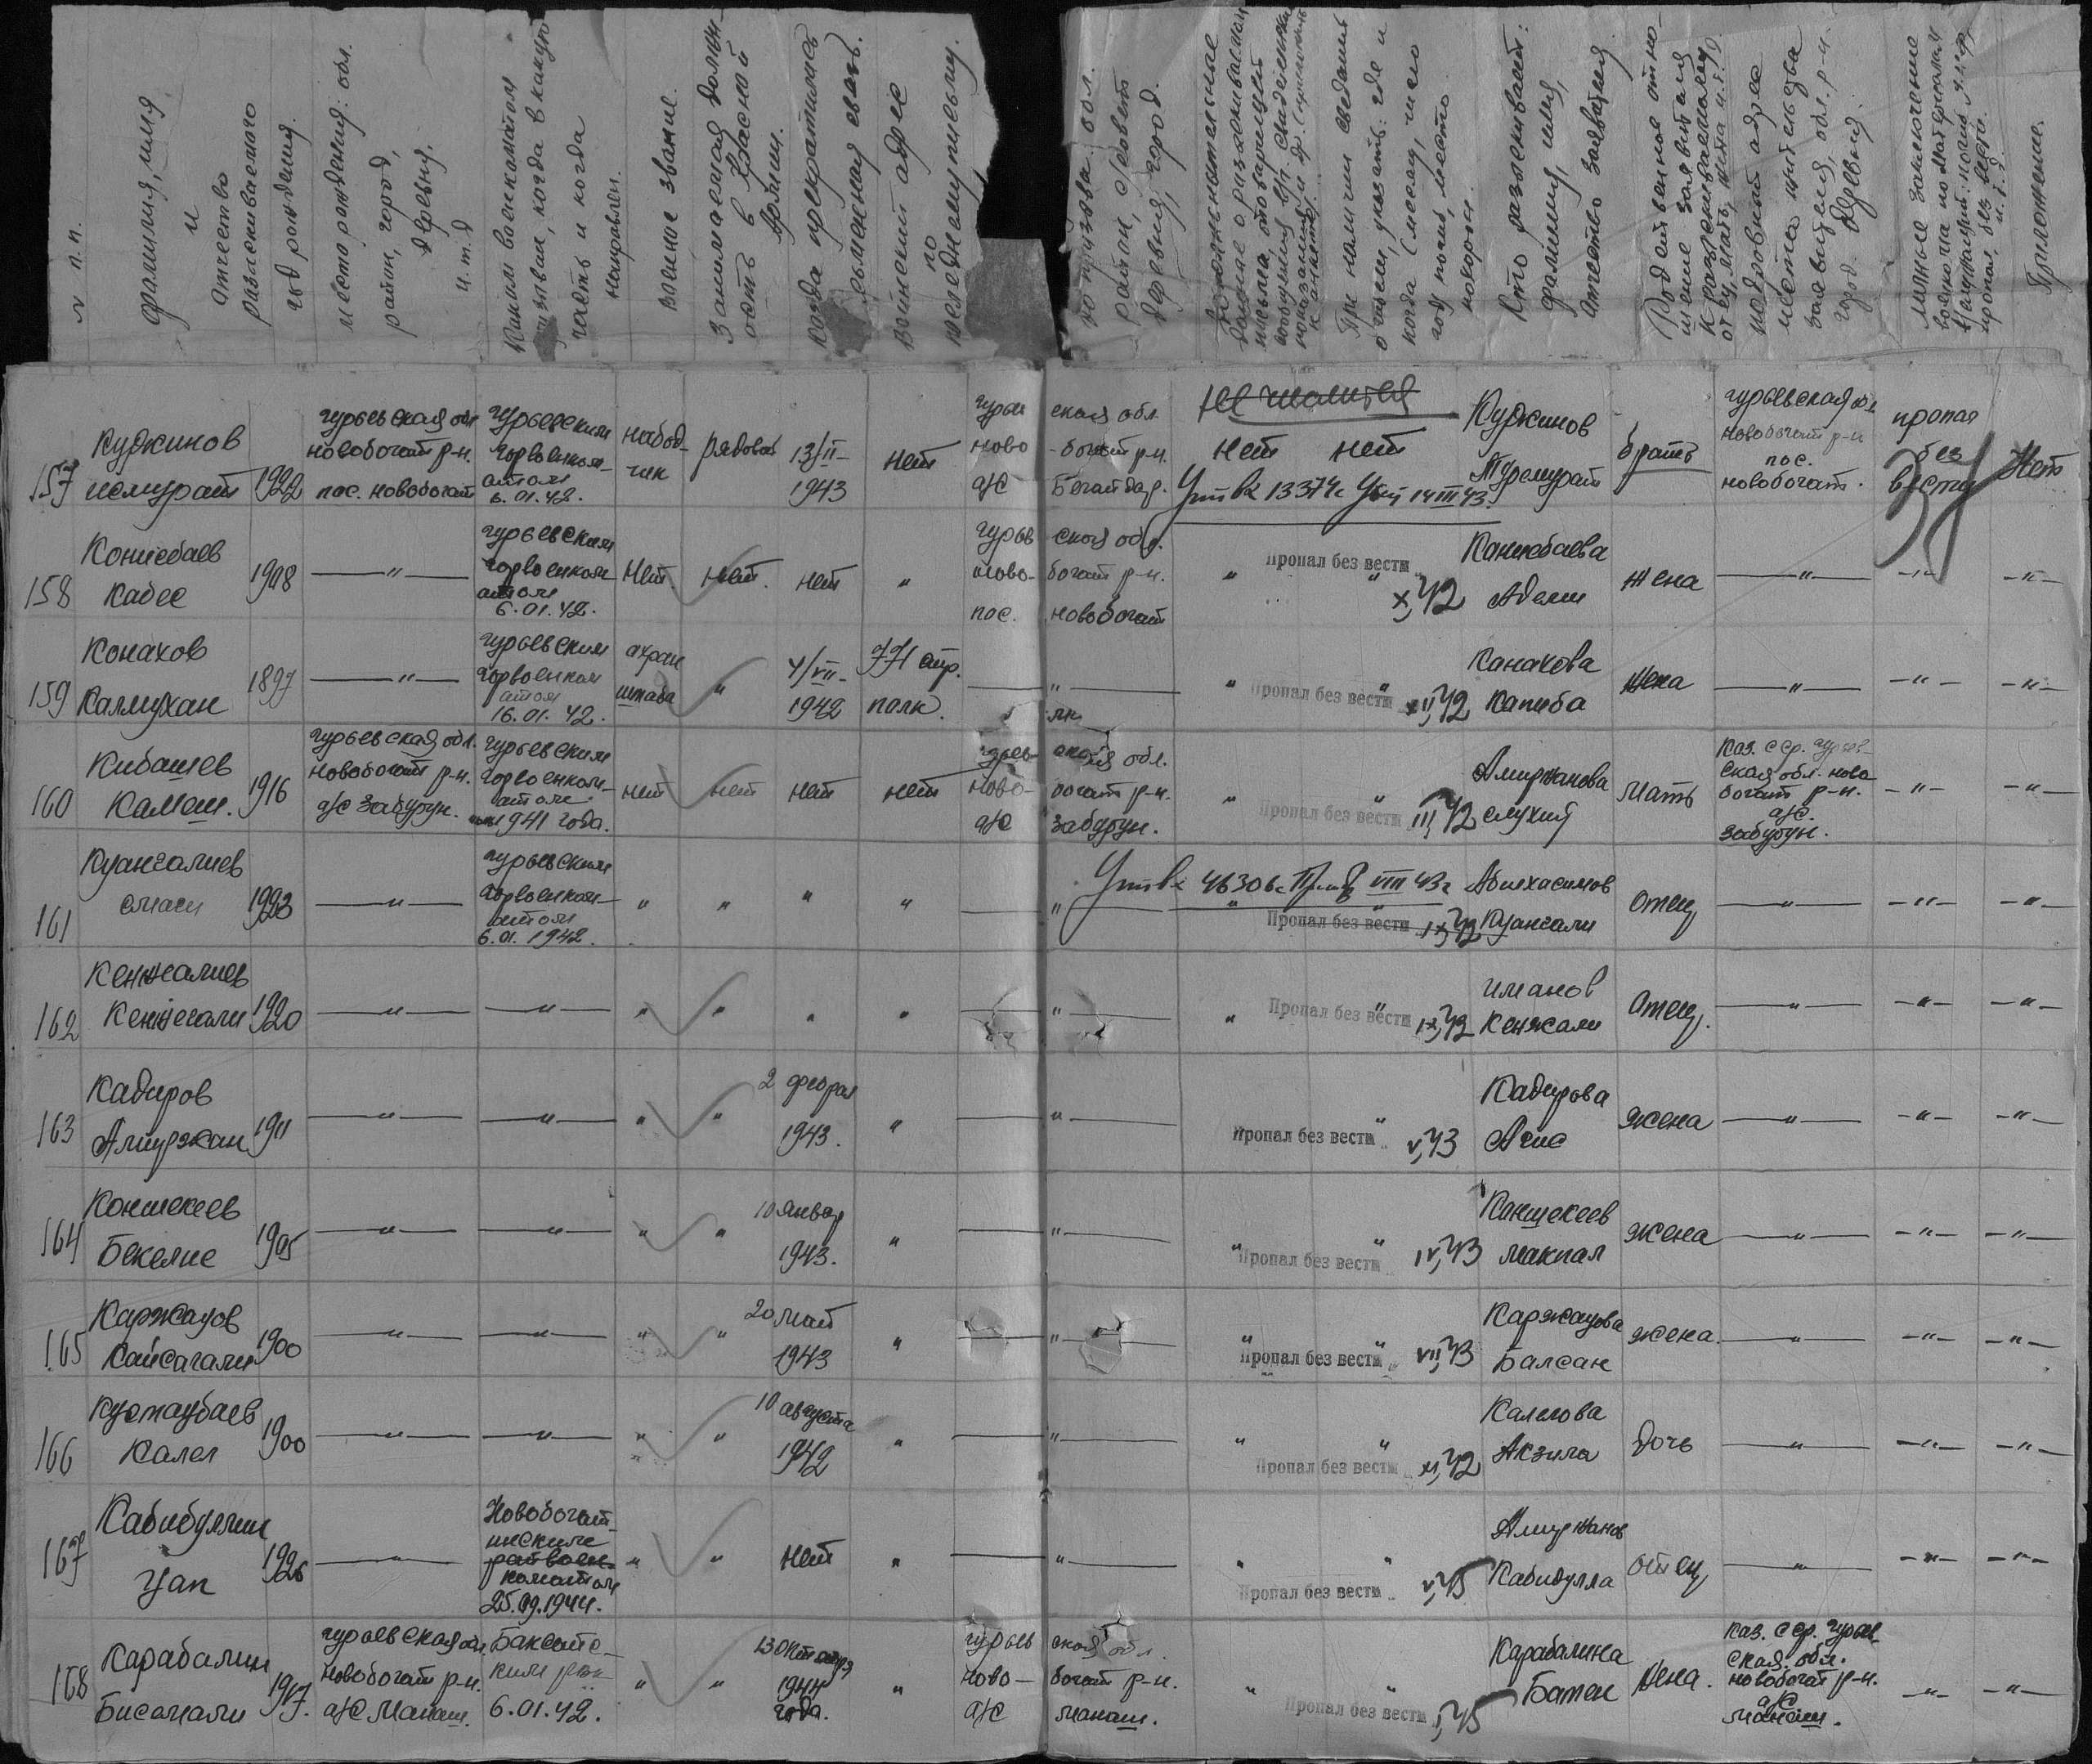 N п. п.
Фамилия, имя
и
отчество
разыскиваемого
год рождения.
Место рождения: обл.
район, город,
деревня,
и. т. д
Каким военкоматом
призван, когда в какую
часть и когда
направлен.
Военное звание.
Занимаемая долж-
ость в Красной
Армии.
Когда прекратилась
письменная связь.
Воинский адрес
по
последнему письму.
до призыва: обл.
район, с/совет
деревня, город.
При наличии сведений
о гибели, указать: где и
когда (месяц, число
год) погиб, место
похорон.
Кто разыскивает:
фамилия, имя,
отчество заявителя.
Родственное отно-
шение заявителя
к разыскиваемому
отец, мать, жена и. т. д.
подробный адрес
места жительства
заявителя, обл. р-н.
город. деревня.
Личное заключение
военкома по материалам
пропал без вести.
и. т. д.
Приложение.
157 Куджинов Исмурат 1922
гурьевская обл новобогат р-н. пос. новобогат
гурьевским горвоенком-атом 6.01.42.
набод-чик рядовой 13/II-1943 нет
гурьев ская обл. ново-богат р-н. а/с
нет нет
Утв вх 13374с Убит 14 III 43.
Куджинов Турсмурат братъ
гурьевская обл. новобогат р-н пос. новобогат.
пропал без вести Нет
158 Кониебаев Кабес 1908 —"—
гурьевским горвоенком-атом 6.01.42.
нет. нет. нет "
гурьев ская обл. ново-богат р-н. пос. новобогат
" Пропал без вести " X,42
Каниебаева Адеми жена —"— -"- -"-
159 Конахов Калмухан 1897 —"—
гурьевским горвоенком атом 16.01.42.
охран штаба " 4/VII-1942 771 стр. полк.
—"— " Пропал без вести " XII,42
Канахова Капиба жена —"— -"- -"-
160 Кибашев Камеш. 1916
гурьевская обл. новобогат р-н. а/с Забурун.
гурьевским горвоенком-атом 1941 года.
нет нет нет нет
гурьев-ская обл. ново-богат р-н. а/с забурун.
" Пропал без вести " III,42
Амиржанова слухия мать
Каз. сср. гурьев-ская обл. ново-богат р-н. а/с. забурун. -"- -"-
161 Куангалиев смаги 1923 —"—
гурьевским горвоенком-атом 6.01.1942.
" " " " —"—
Утв вх 46306с VIII 43г
" Пропал без вести " IX,42
Абилхасимов Куангали отец —"— -"- -"-
162 Кенжалиев Кенжегали 1920 —"— —"—
" " " " —"—
" Пропал без вести " IX,42
иманов Кенжали отец. —"— -"- -"-
163 Кадиров Амиржан 1911 —"— —"—
" " 2 феврал 1943. " —"—
Пропал без вести " V,43
Кадирова Агис жена —"— -"- -"-
164 Коншекеев Бекелие 1905 —"— —"—
" " 10 январ 1943. " —"—
" Пропал без вести " IV,43
Каншекеев макпал жена —"— -"- -"-
165 Каржауов Кайсагали 1900 —"— —"—
" " 20 май 1943 " —"—
" Пропал без вести " VII,43
Каржауова Балсан жена. —"— -"- -"-
166 Кустаубаев Калел 1900 —"— —"—
" " 10 августа 1942 " —"—
" Пропал без вести " XI,42
Калелова Акзила дочь —"— -"- -"-
167 Кабибуллин Уап 1926 —"—
Новобогат-инским райвоен-коматом 25.09.1944.
" " нет " —"—
" Пропал без вести " V,45
Амиржанов Кабибулла отец —"— -"- -"-
168 Карабалин Бисомали 1917.
гурьевская обл. новобогат р-н. а/с Манаш.
Баксайс-ким рвк 6.01.42.
" " 13 октября 1944 года. "
гурьев ская обл. ново-богат р-н. а/с манаш.
" Пропал без вести " I,45
Карабалина Батен жена.
Каз. сср. гурьев-ская. обл. новобогат р-н. а/с манаш. -"- -"-